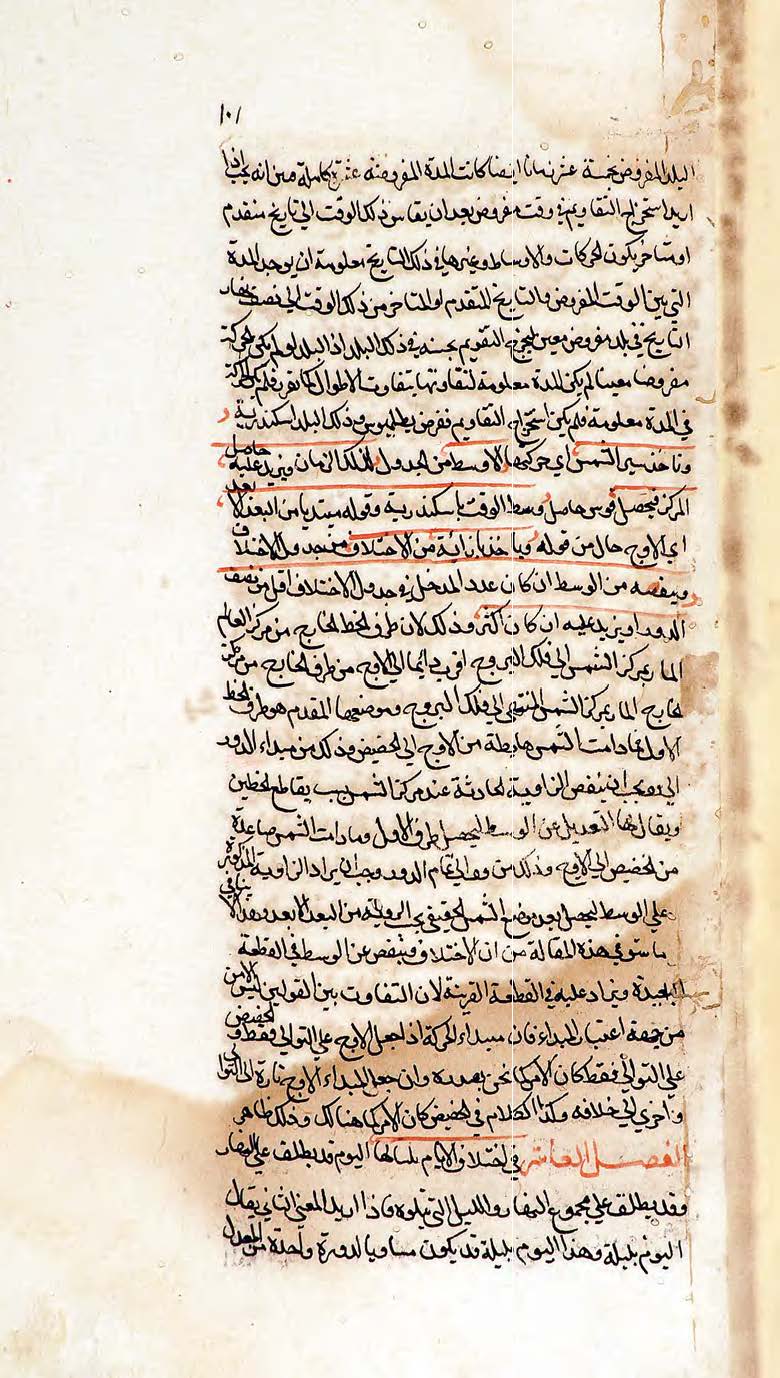 ١٠١
البلد المفروض بخمسة عشر زمانا ايضا كانت المدة المفروضة عشرة كاملة من انه يجب اذا
اريد استخراج التقاويم في وقت مفروض بعد ان يقاس ذلك الوقت الى تاريخ متقدم
او متاخر يكون الحركات والاوساط وغيرها في ذلك التاريخ معلومة ان يوجد المدة
التي بين الوقت المفروض والتاريخ المتقدم او المتاخر من ذلك الوقت الى نصف نهار
التاريخ في بلد مفروض معين ليخرج التقويم بحسبه في ذلك البلد اذ البلد لو لم يكن
مفروضا معينا لم يكن المدة معلومة لتفاوتها بتفاوت الاطوال كما تقرر فلم يكن الحركة
في المدة معلومة فلم يكن استخراج التقاويم ففرض بطلميوس ذلك البلد اسكندرية
وناخذ سير الشمس اي حركتها الاوسط من الجدول لذلك الزمان ويزيد عليه حاصل
المركز فيحصل قوس حاصل وسط الوقت باسكندرية وقوله مبتديا من البعد الابعد
اي الاوج حال من قوله وياخذ بازائه من الاختلاف من جدول الاختلاف
وينقصه من الوسط ان كان عدد المدخل في جدول الاختلاف اقل من نصف
الدور او يزيد عليه ان كان اكثر وذلك لان طرف الخط الخارج من مركز العالم
المار بمركز الشمس الى فلك البروج اقرب دايما الى الاوج من طرف الخارج من مركز
الخارج المار بمركز الشمس المنتهي الى فلك البروج وموضعها المقدم هو طرف الخط
الاول فما دامت الشمس هابطة من الاوج الى الحضيض وذلك من مبداء الدور
الى يجب ان ينقص الزاوية الحادثة عند مركز الشمس بسبب تقاطع الخطين
ويقال لها التعديل عن الوسط ليحصل طرف الاول وما دامت الشمس صاعدة
من الحضيض الى الاوج وذلك من الى تمام الدور وجب ان يراد الزاوية المذكورة
على الوسط ليحصل بعد موضع الشمس الحقيقي بحسب الروية من البعد الابعد وهذا لا ينافي
ما سنوفي هذه المقالة من ان الاختلاف ينقص عن الوسط في القطعة
البعيدة ويزاد عليه في القطعة القريبة لان التفاوت بين القولين ليس الا من
جهة اعتبار المبداء فان مبداء الحركة اذا جعل الاوج على التوالي فقط او الحضيض
على التوالي فقط كان الامر كما نحن بصدده وان جعل المبداء الاوج تارة الى التوالي
واخرى الى خلافه وكذا الكلام في الحضيض كان الامر كما هنالك وذلك ظاهر
الفصل العاشر في اختلاف الايام بلياليها اليوم قد يطلق على النهار
وقد يطلق على مجموع النهار والليل التي تتلوه فاذا اريد المعنى الثاني يقال
اليوم بليلة وهذا اليوم بليلة قد يكون مساويا لدورة واحدة من المعدل